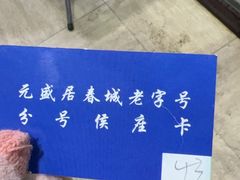 元盛居春城老字号
分号侯座卡
43